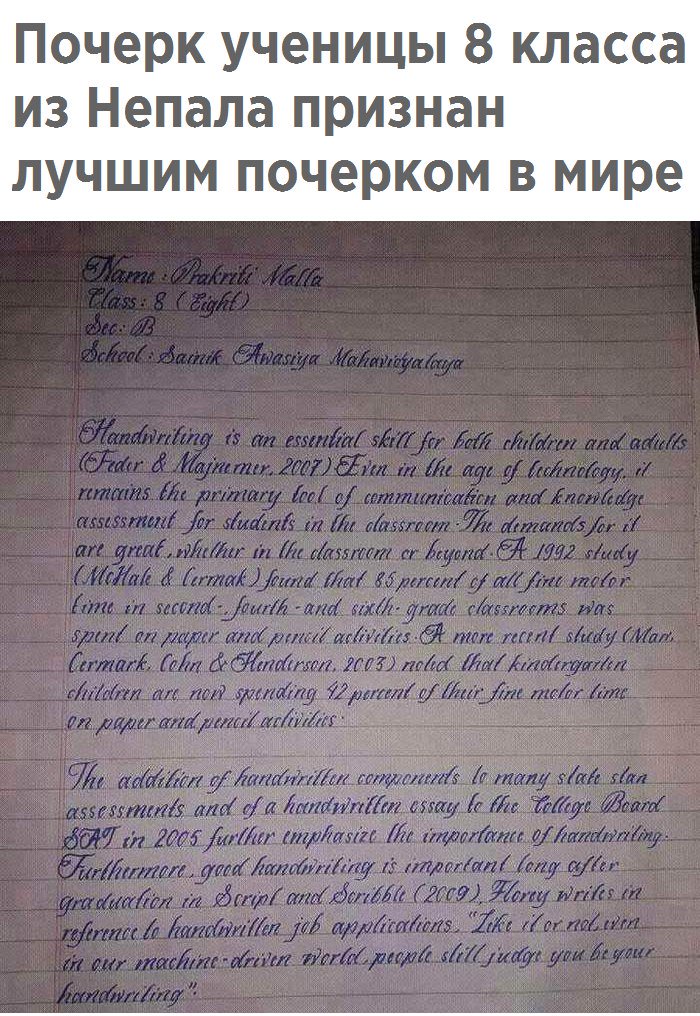 Почерк ученицы 8 класса
из Непала признан
лучшим почерком в мире
Name : Prakriti Malla
Class : 8 ( Eight )
Sec : B
School : Sainik Awasiya Mahavidyalaya
Handwriting is an essential skill for both children and adults
(Feder & Majnemer, 2007) Even in the age of technology, it
remains the primary tool of communication and knowledge
assessment for students in the classroom. The demands for it
are great, whether in the classroom or beyond. A 1992 study
(McHale & Cermak) found that 85 percent of all fine motor
time in second-, fourth - and sixth- grade classrooms was
spent on paper and pencil activities. A more recent study (Marr,
Cermark, Cohn & Henderson, 2003) noted that kindergarten
children are now spending 42 percent of their fine motor time
on paper and pencil activities.
The addition of handwritten components to many state stan
assessments and of a handwritten essay to the College Board
SAT in 2005 further emphasize the importance of handwriting.
Furthermore, good handwriting is important long after
graduation in Script and Scribble (2009), Florey writes in
reference to handwritten job applications, "Like it or not, even
in our machine-driven world, people still judge you be your
handwriting".